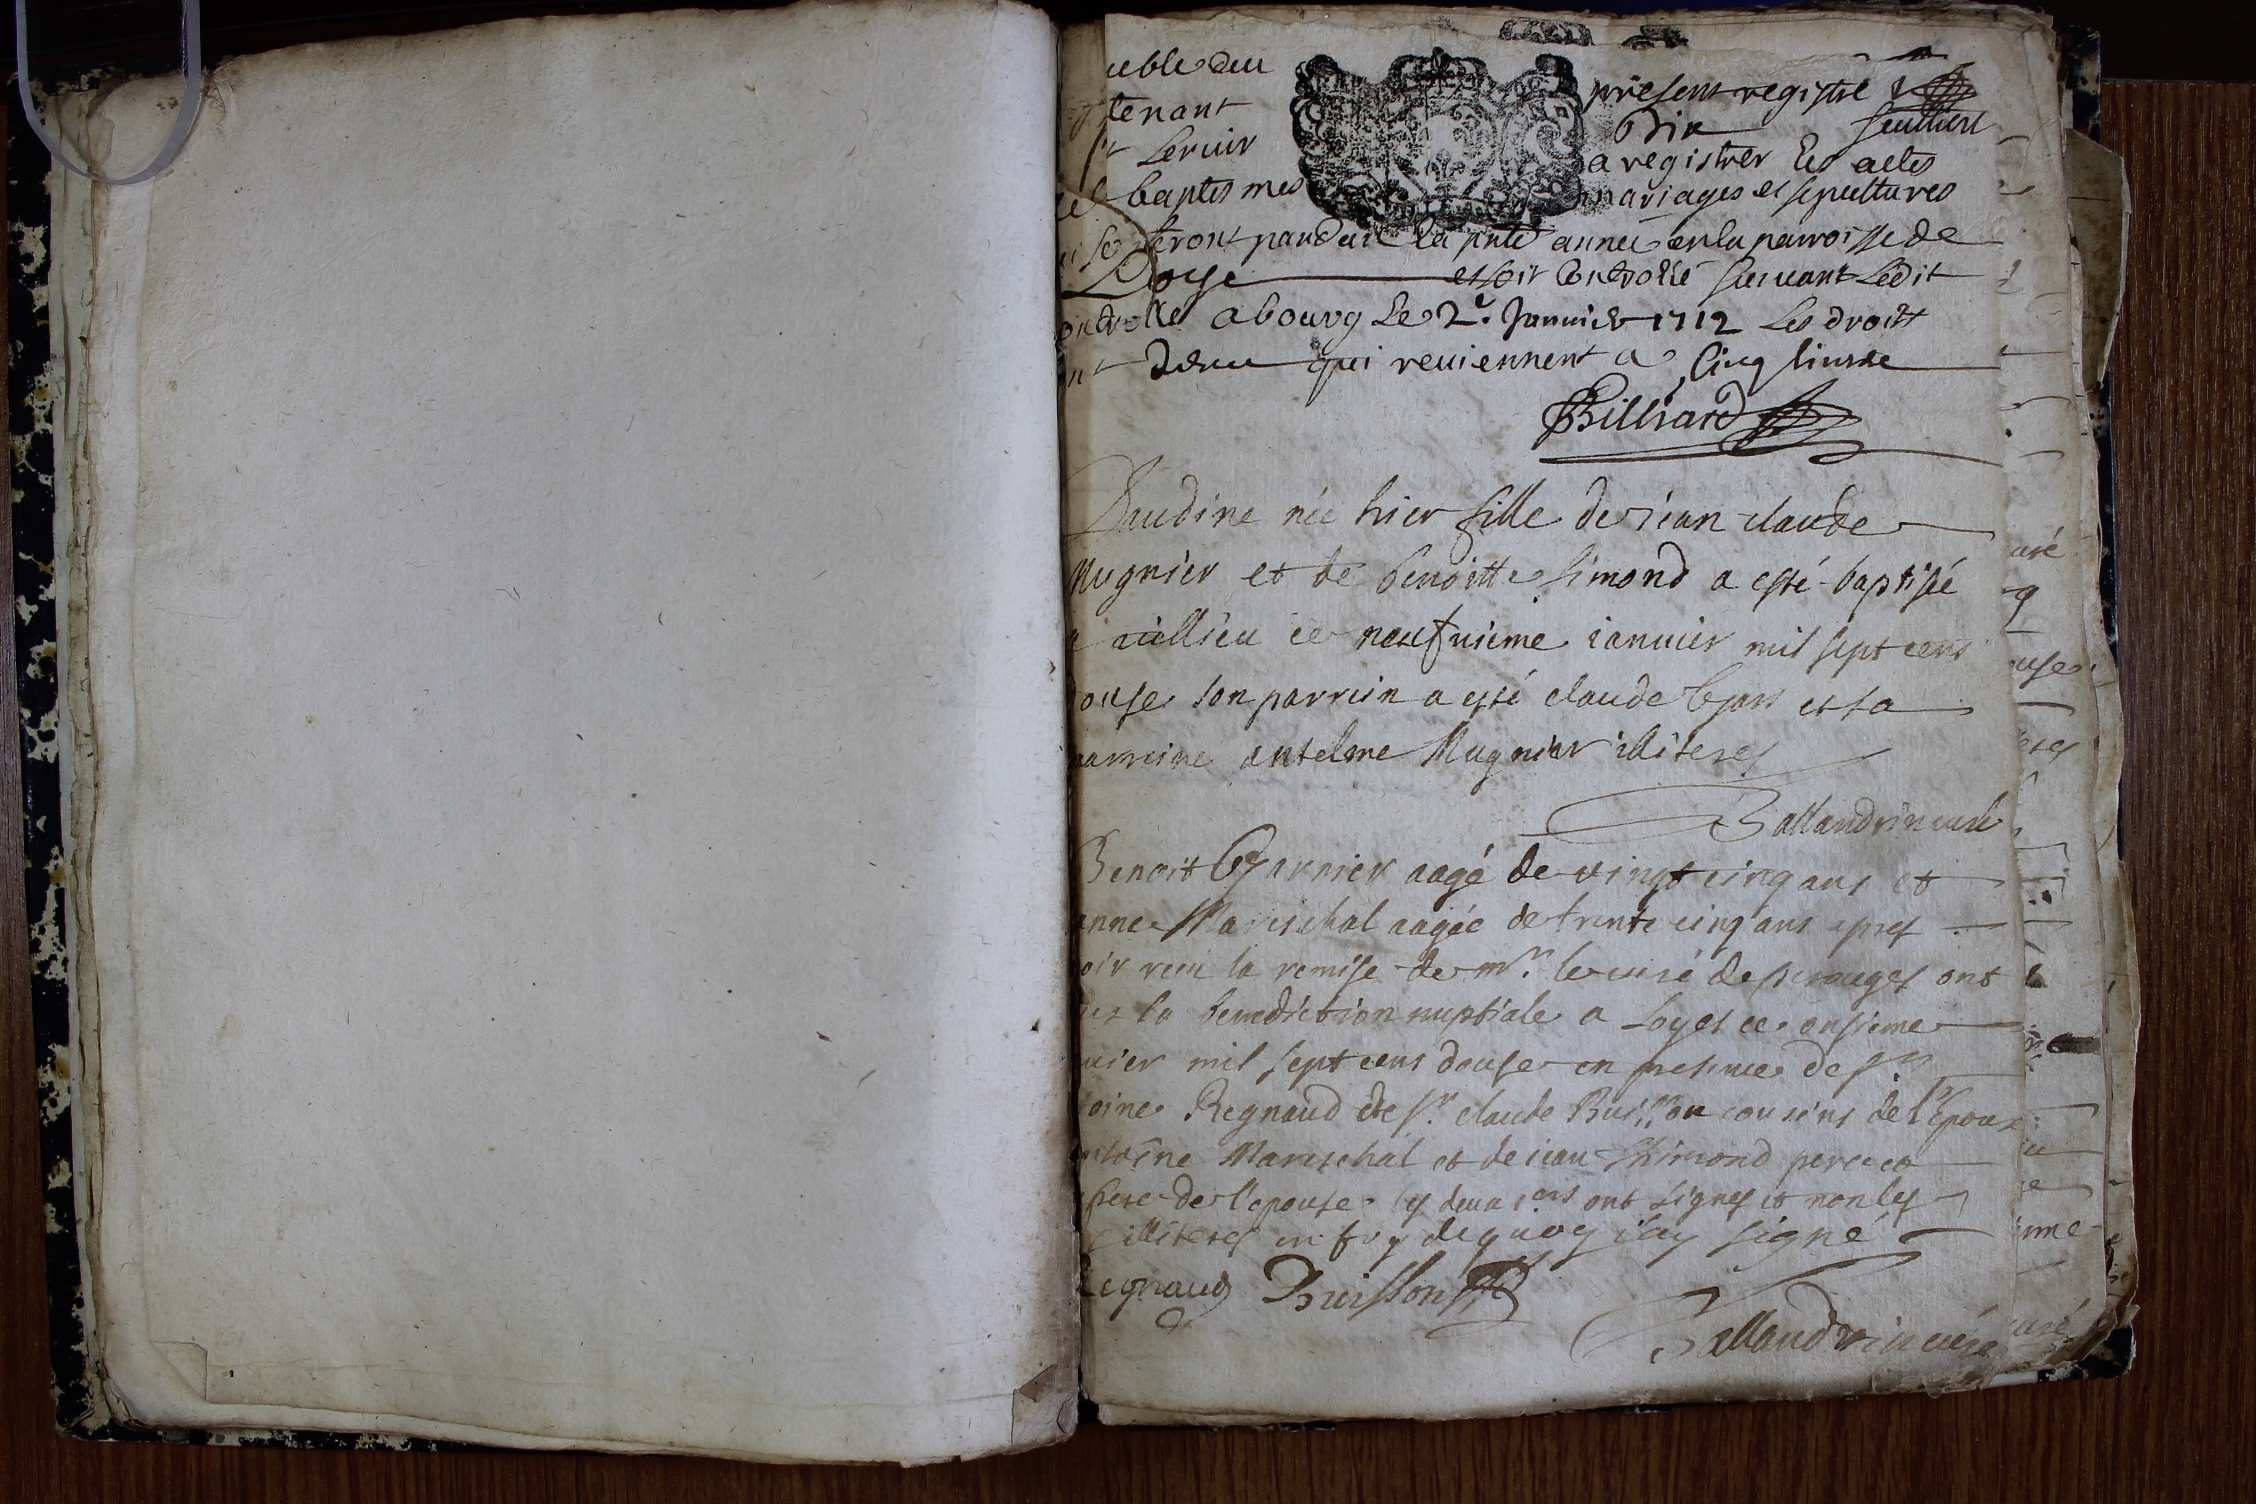 uble du present registre
tenant Dix feuillets
et servir a registrer les actes
de baptesmes mariages et sepultures
qui se feront pandant la pnte année en la parroisse de
Loye et soit controllé suivant ledit
controlle a bourg le 2e. Janvier 1712 les droits
ont deu qui reviennent a Cinq livres
Billiard
Claudine née hier fille de jean claude
Mugnier et de benoitte simond a esté baptisée
a ce neufvieme janvier mil sept cens
douse son parrein a esté claude et sa
marreine anselme Mugnier illiteres
Ballandrin curé
Benoit Garnier aagé de vingt cinq ans et
anne Mareschal aagée de trente cinq ans apres
oir receu la remise de mr. le curé de perouges ont
la benediction nuptiale a Loyes ce onsieme
vier mil sept cens douse en presence de sr
toine Regnaud et de sr. claude Buisson cousins de l'epoux
antoine Mareschal et de jean Thimond pere et
frere de l'epouse les deux 1ers ont signes et non les
illiteres en foy de quoy j'ay signé
Regnaud Buisson
Ballandrin curé